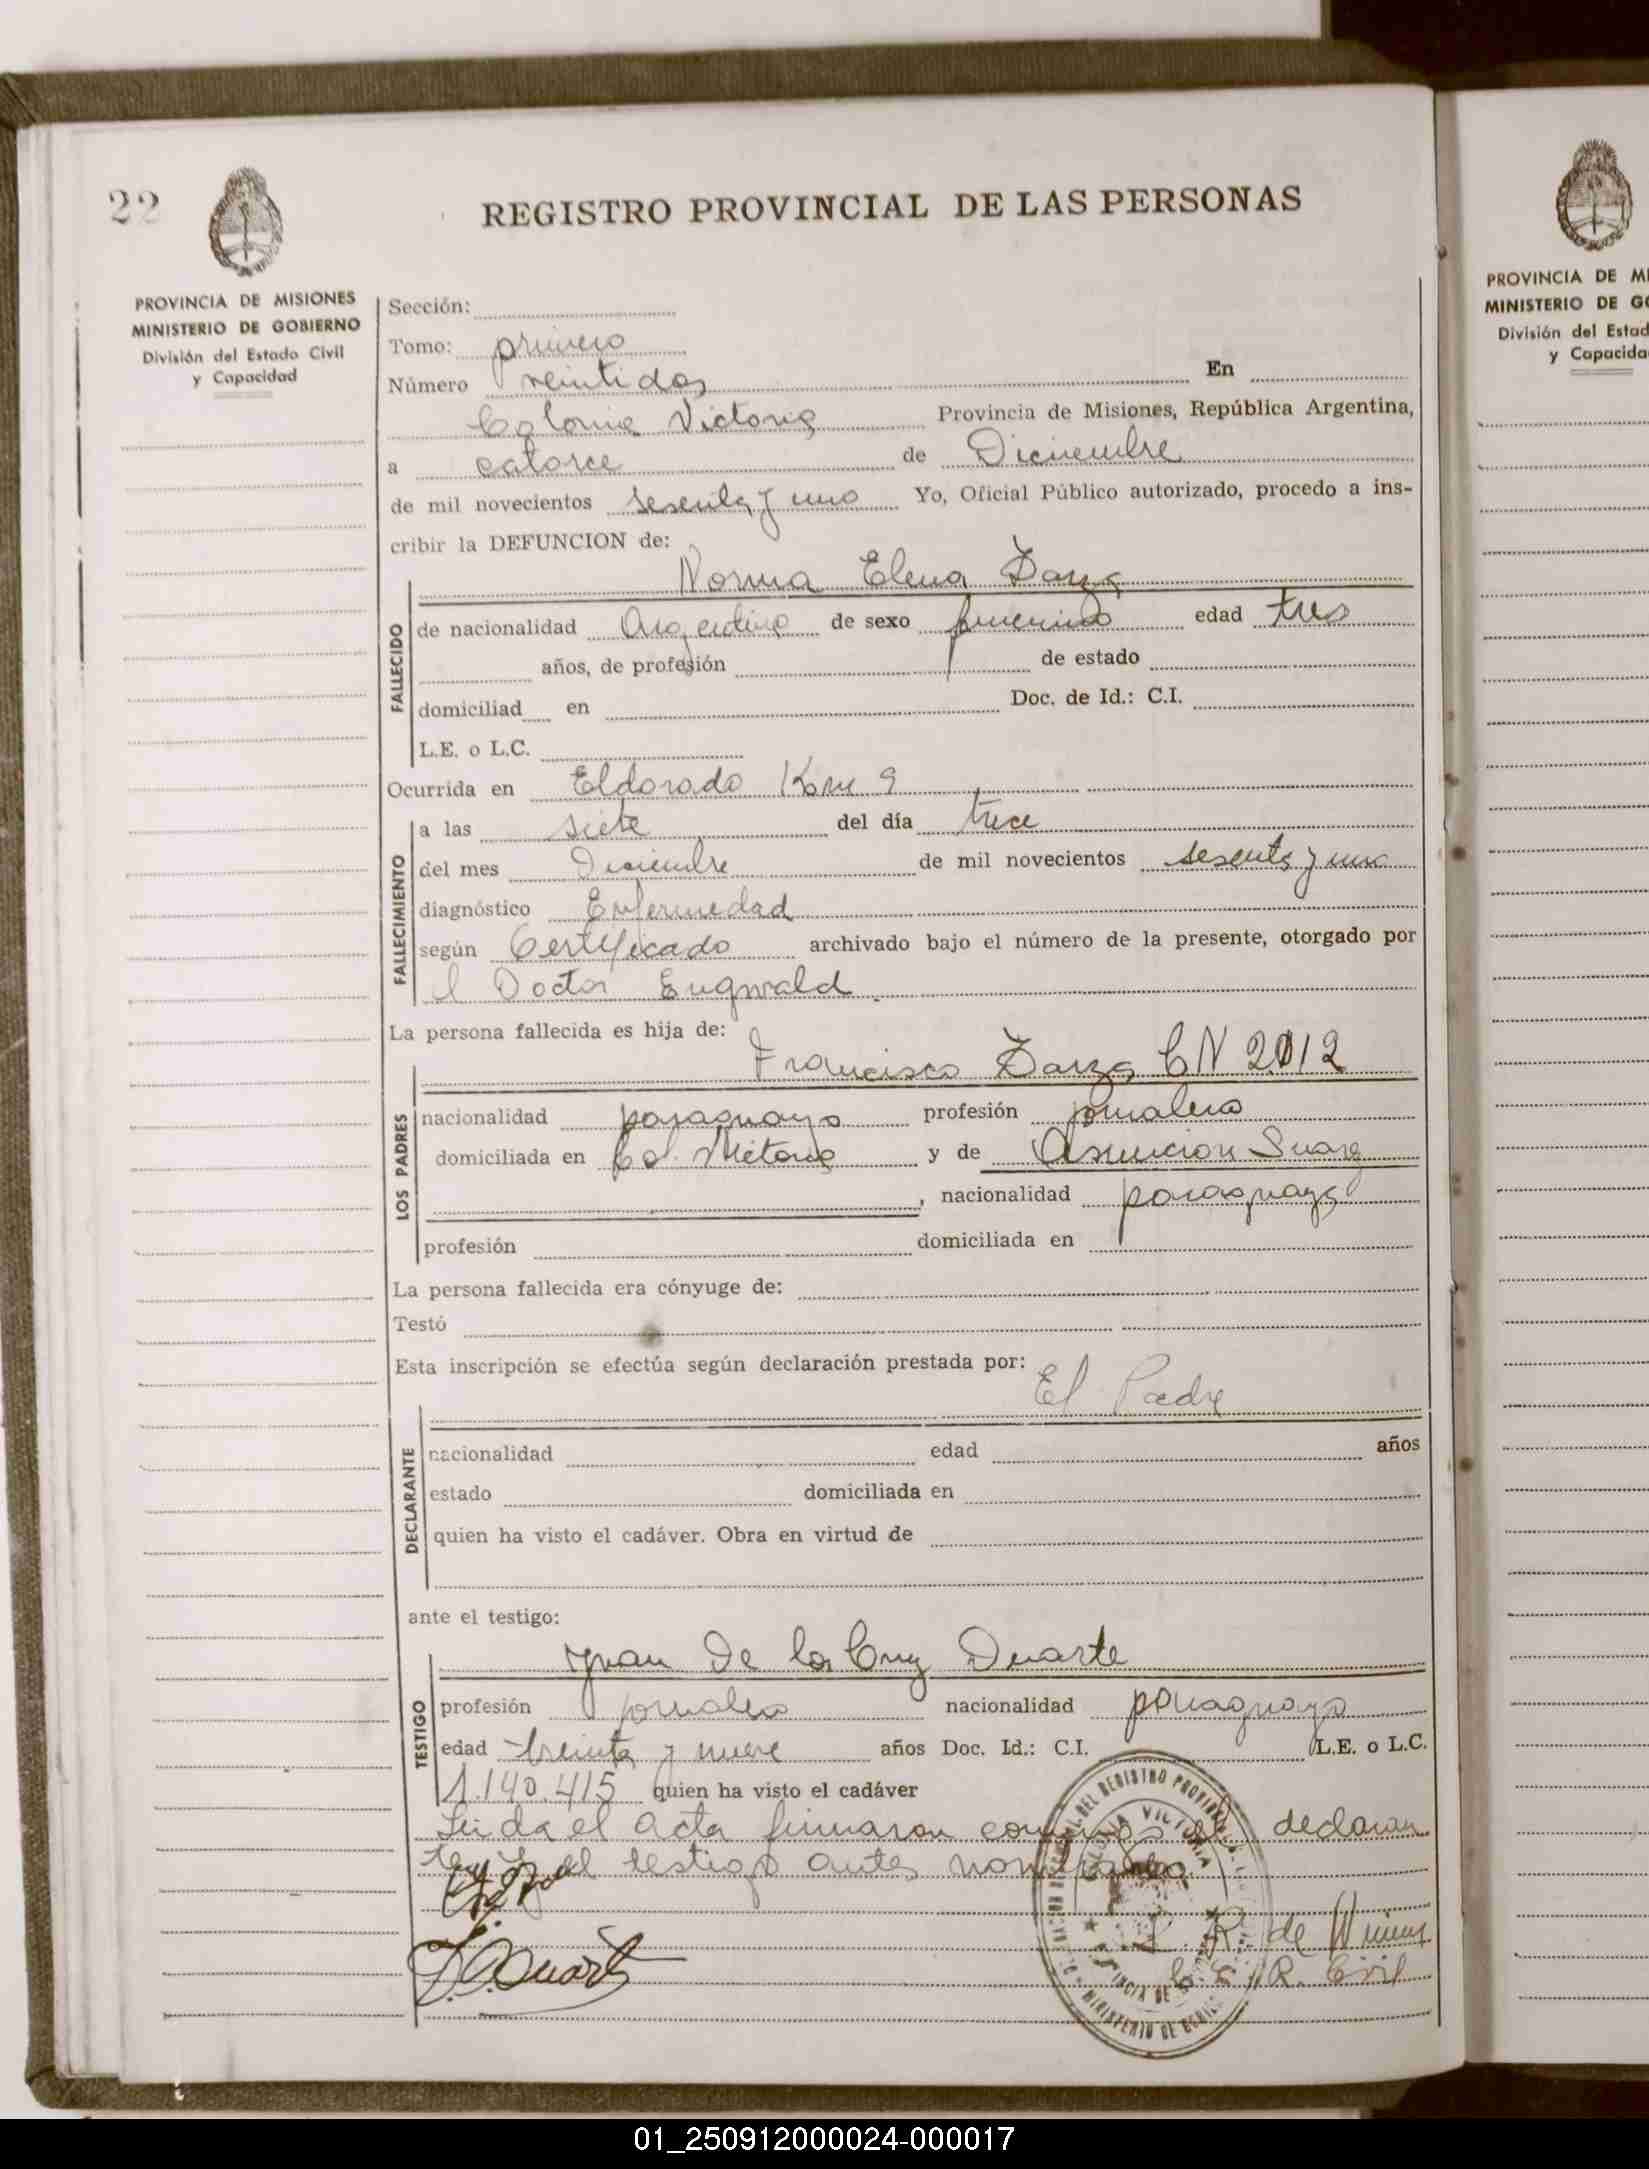 22
REGISTRO PROVINCIAL DE LAS PERSONAS
PROVINCIA DE MISIONES
MINISTERIO DE GOBIERNO
División del Estado Civil
y Capacidad
Sección:
Tomo: primero
Número Veintidos En
Colonia Victoria Provincia de Misiones, República Argentina,
a catorce de Diciembre
de mil novecientos sesenta y uno Yo, Oficial Público autorizado, procedo a ins-
cribir la DEFUNCION de:
Norma Elena Zarza
FALLECIDO
de nacionalidad Argentina de sexo femenino edad tres
años, de profesión de estado
domiciliad en Doc. de Id.: C.I.
L.E. o L.C.
Ocurrida en Eldorado Km 9
FALLECIMIENTO
a las siete del día trece
del mes Diciembre de mil novecientos sesenta y uno
diagnóstico Enfermedad
según Certificado archivado bajo el número de la presente, otorgado por
el Doctor
La persona fallecida es hija de:
Francisco Zarza CN 2012
LOS PADRES
nacionalidad paraguayo profesión jornalero
domiciliada en Col. Victoria y de Asuncion Suarez
, nacionalidad paraguaya
profesión domiciliada en
La persona fallecida era cónyuge de:
Testó
Esta inscripción se efectúa según declaración prestada por:
El Padre
DECLARANTE
nacionalidad edad años
estado domiciliada en
quien ha visto el cadáver. Obra en virtud de
ante el testigo:
Juan De la Cruz Duarte
TESTIGO
profesión jornalero nacionalidad paraguayo
edad treinta y nueve años Doc. Id.: C.I. L.E. o L.C.
1.140.415 quien ha visto el cadáver
Leida el acta firmaron conmigo el declaran
te y el testigo antes nombrados
J. Duarte
R. de
R. Civil
COLONIA VICTORIA
MINISTERIO DE
PROVINCIA DE MI
MINISTERIO DE GO
División del Estad
y Capacida
01_250912000024-000017